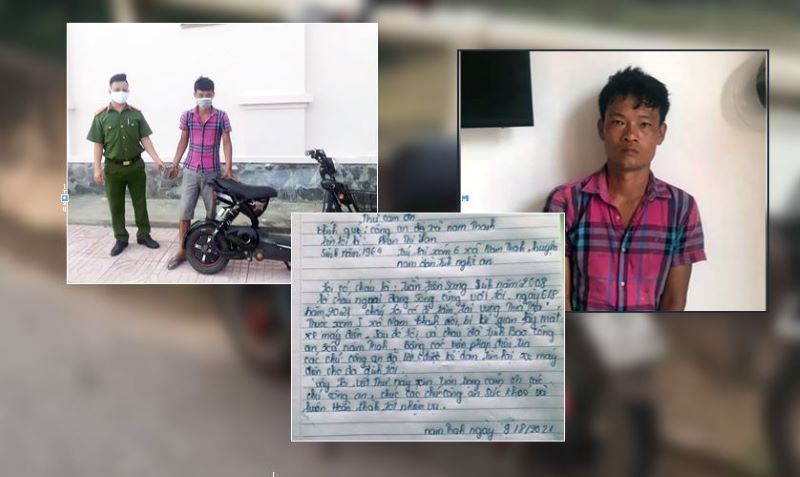 Thư cảm ơn
Kính gửi: công an xã Nam Thanh
tên tôi là: Phan Thị Van
Sinh năm 1964 Trú tại xóm 6 xã Nam Thanh, huyện
nam đàn tỉnh nghệ an
Tôi có cháu là: Trần Tiến Sang Sinh năm 2008
là cháu ngoại đang sống cùng với tôi, ngày 6/8
năm 2021 cháu tôi có đi tắm tại vùng
Thuộc xóm 5 xã Nam thanh bị kẻ gian lấy mất
xe máy điện. Sau đó tôi và cháu đã trình báo công
an xã nam thanh. Bằng các biện pháp điều tra
các chú công an đã tìm được kẻ gian, tìm lại xe máy
điện cho gia đình tôi
Vậy tôi viết thư này xin trân trọng cảm ơn các
chú công an, chúc các chú công an sức khỏe và
luôn hoàn thành tốt nhiệm vụ.
nam thanh ngày 9/8/2021